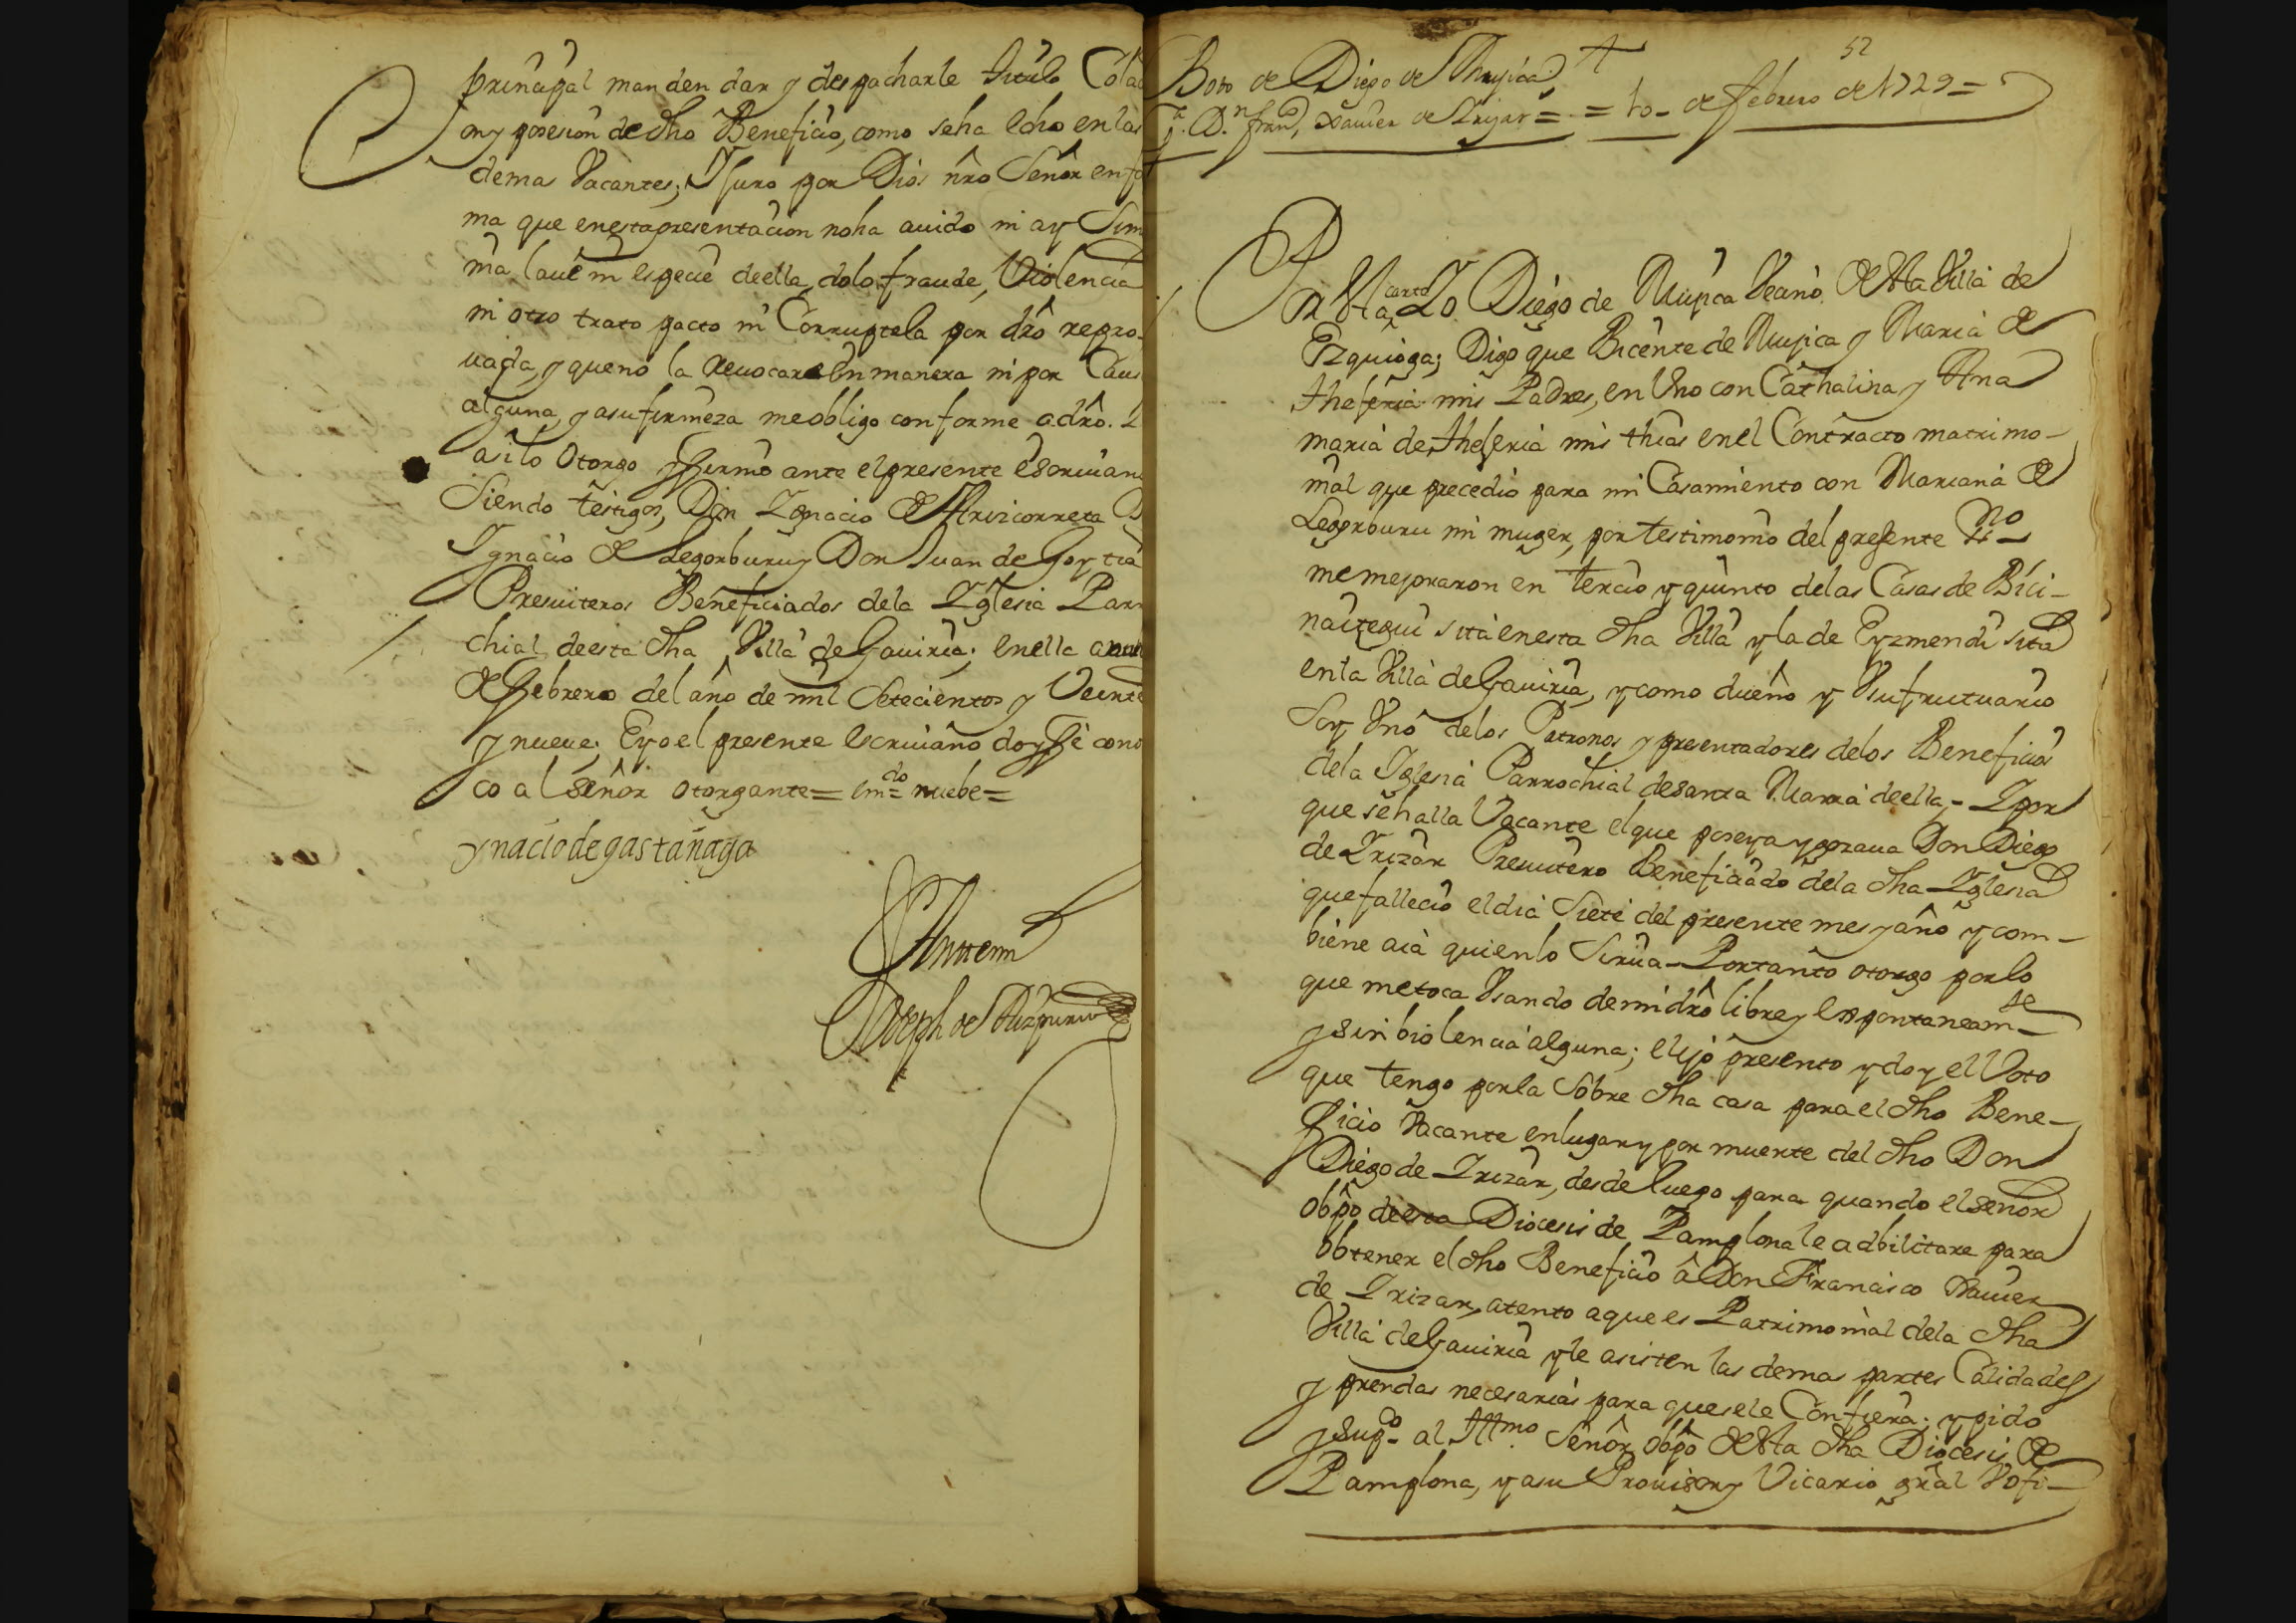 principal manden dar y despacharle titulo Colaci
on y posesion de dho Beneficio, como se ha echo en las
demas Vacantes; Y Juro por Dios nro Señor en for
ma que en esta presentacion no ha auido ni ay Simo
nia laue ni especie de ella, dolo, fraude, Violencia
ni otro trato pacto ni Corruptela por dro repro-
uada, y que no la Reuocare En manera ni por Caus
alguna, y a su firmeza me obligo conforme a dro. Y
asi lo Otorgo y firmo ante el presente escriuano
Siendo testigos, Don Ignacio de Arizcorreta
Ygnacio de Legorburu y Don Juan de Goytia
Presuiteros Beneficiados de la Yglesia Parro
chial de esta dha Villa de Gauiria; en ella a
de Febrero del año de mil Setecientos y Veinte
y nueue; E yo el presente escriuano doy fe cono
co al señor otorgante = em.do = nuebe =
ynacio de gastañaga
Ante mi
Joseph de Aizpuru
52
Boto de Diego de Muxica,
a D.n Fran.co Xauier de Yrizar = = 10 - de febrero de 1729 =
Por Esta carta Yo Diego de Muxica Vecino de Esta Villa de
Ezquioga; Digo que Bicente de Muxica y Maria de
Theleria mis Padres, en Vno con Cathalina y Ana
maria de Theleria mis thias en el Contracto matrimo-
nial que precedio para mi Casamiento con Mariana de
Legorburu mi muger, por testimonio del presente ss.no
me mejoraron en tercio y quinto de las Casas de Bici-
naiztegui sita en esta dha Villa y la de Eyzmendi sita
en la Villa de Gauiria, y como dueño y Vsufructuario
Soy Vno de los Patronos y presentadores de los Beneficios
de la Yglesia Parrochial de santa Maria de ella, - Y por
que se halla Vacante el que poseya y gozaua Don Diego
de Yrizar Presuitero Beneficiado de la dha Yglesia
que fallecio el dia Siete del presente mes y año y com-
biene aia quien lo Sirua - Por tanto otorgo por lo
que me toca Vsando de mi dro libre y espontaneam.te
y sin biolencia alguna; elijo presento y doy el Voto
que tengo por la Sobre dha casa para el dho Bene-
ficio Vacante en lugar y por muerte del dho Don
Diego de Yrizar, desde luego para quando el señor
obpo de esta Diocesis de Pamplona le adbilitare para
obtener el dho Beneficio â Don Francisco Xauier
de Yrizar, atento a que es Patrimonial de la dha
Villa de Gauiria y le asisten las demas partes Calidades
y prendas necesarias para que se le Confiera; y pido
y sup.co al Ill.mo Señor Obpo de Esta dha Diocesis de
Pamplona, y a su Prouisor y Vicario gral V ofi-